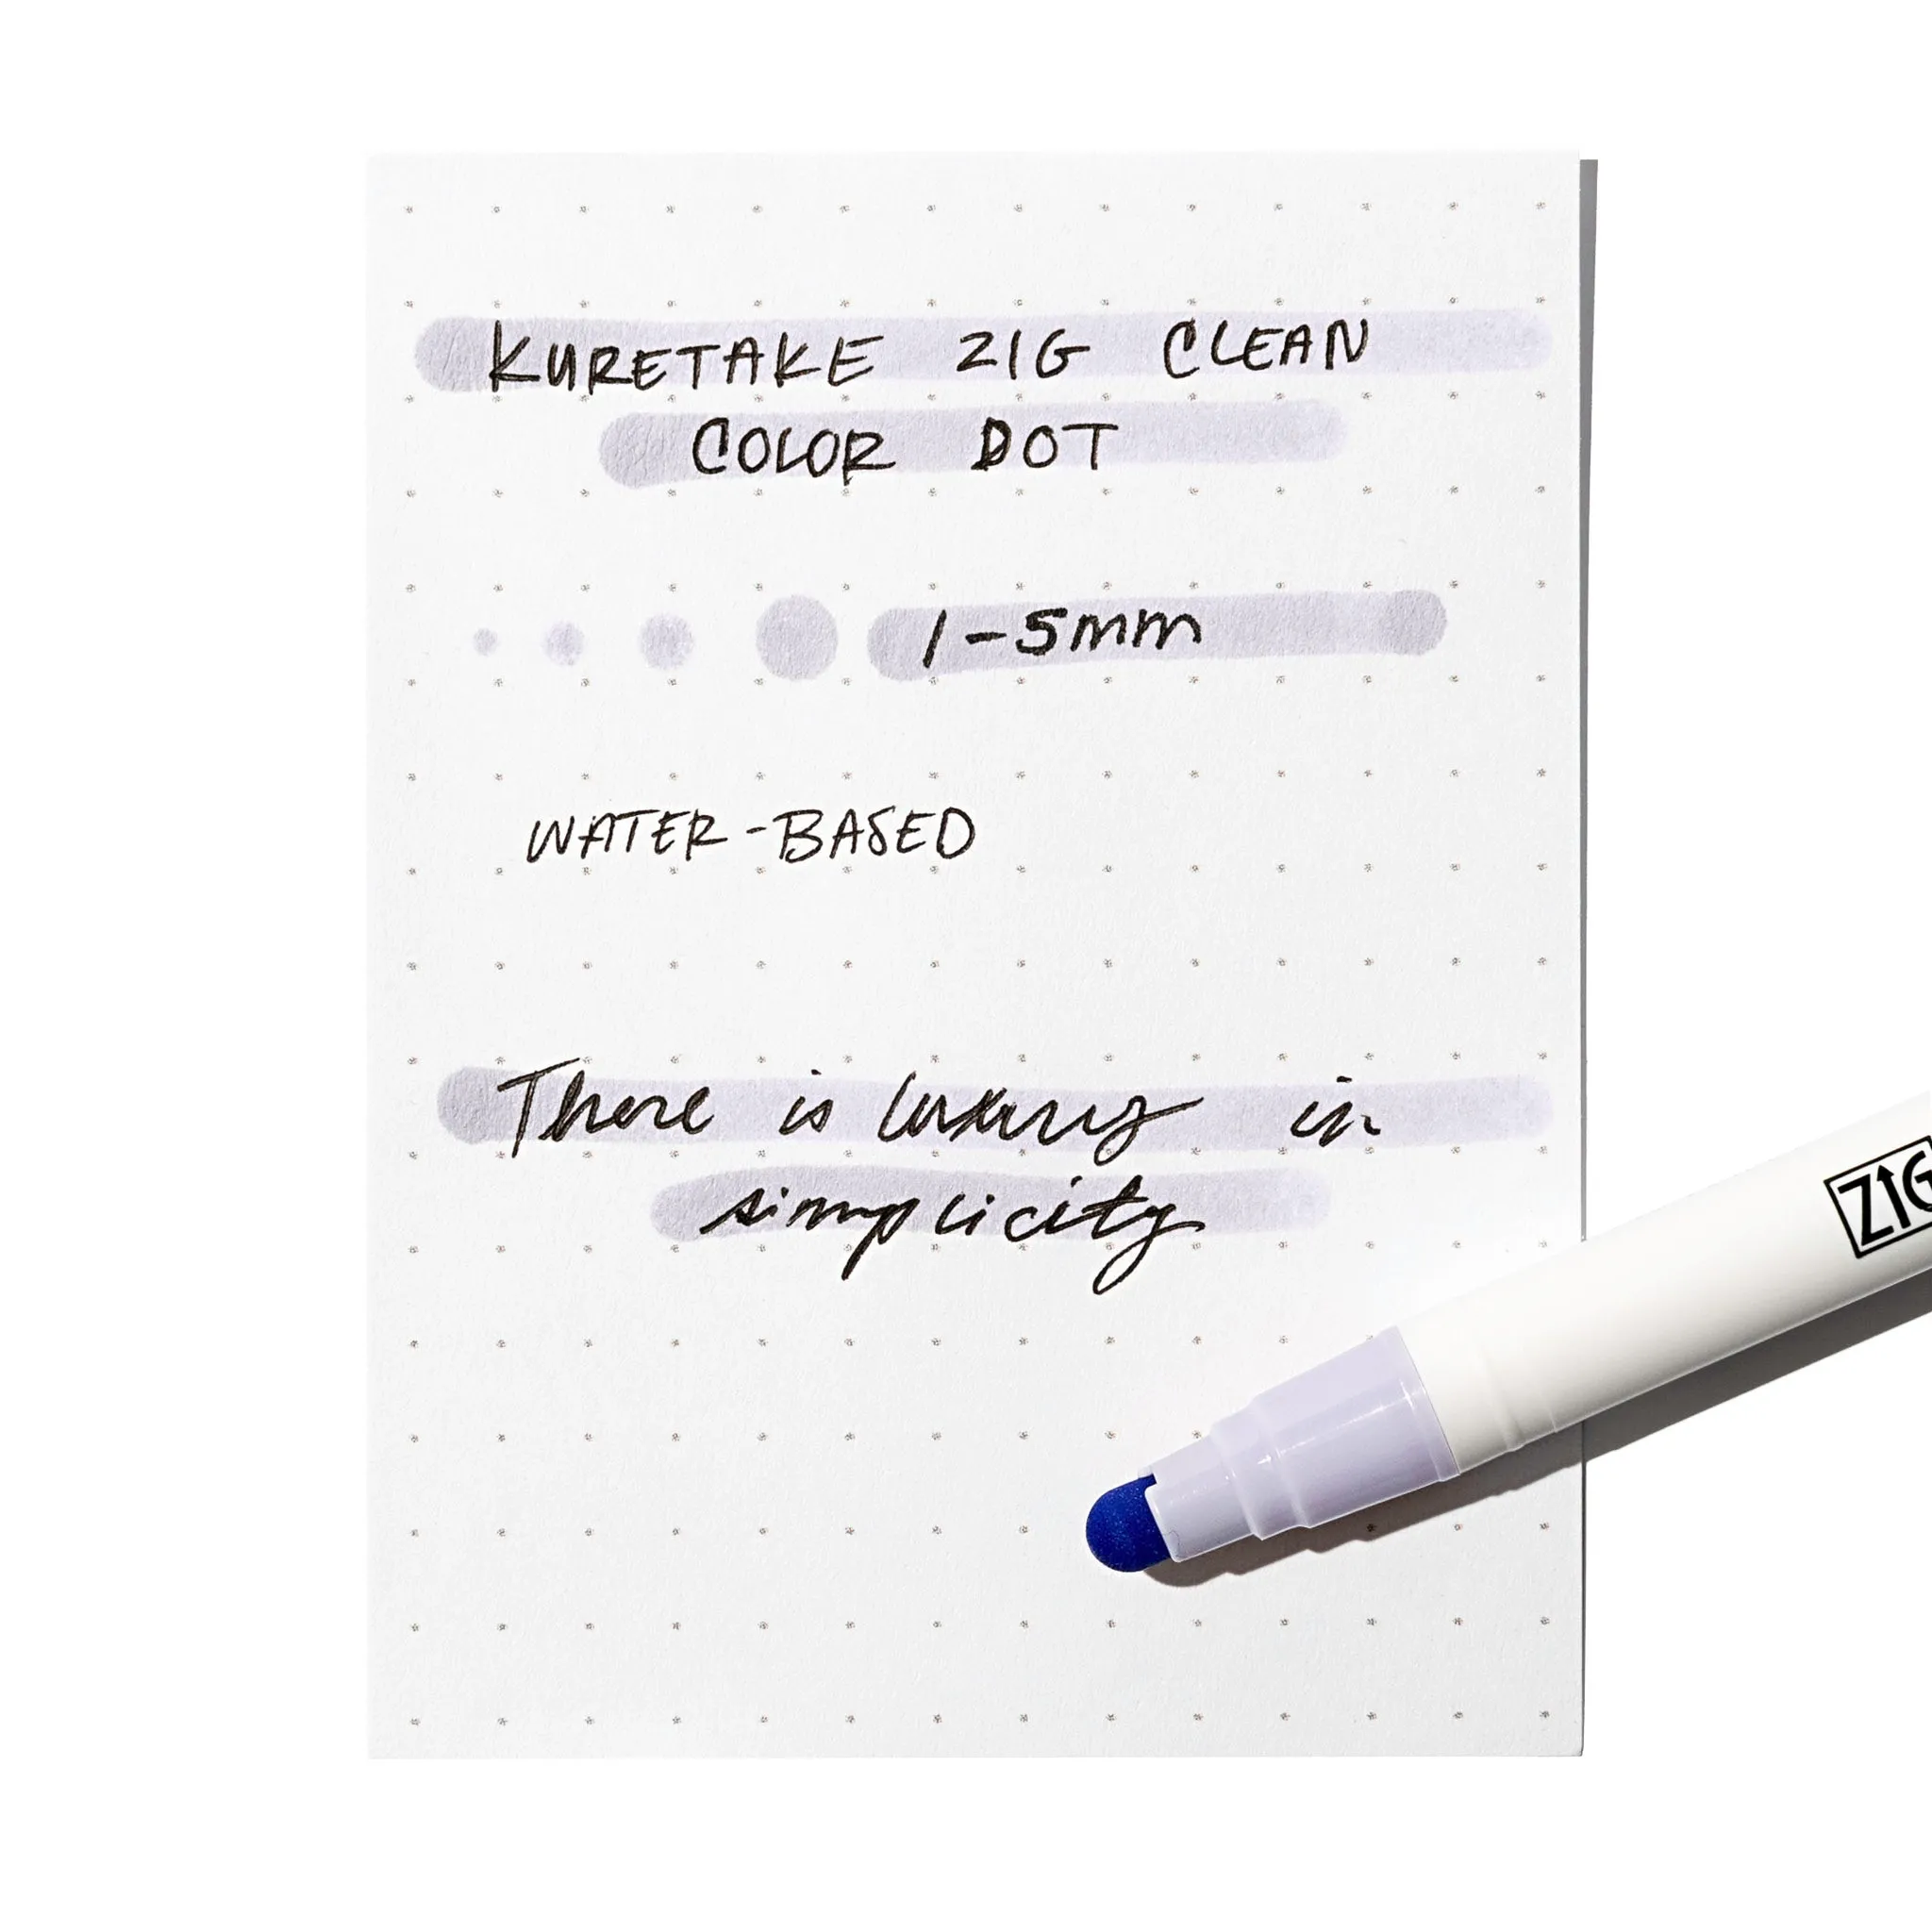 KURETAKE ZIG CLEAN
COLOR DOT
1-5mm
WATER-BASED
There is luxury in
simplicity
ZIG